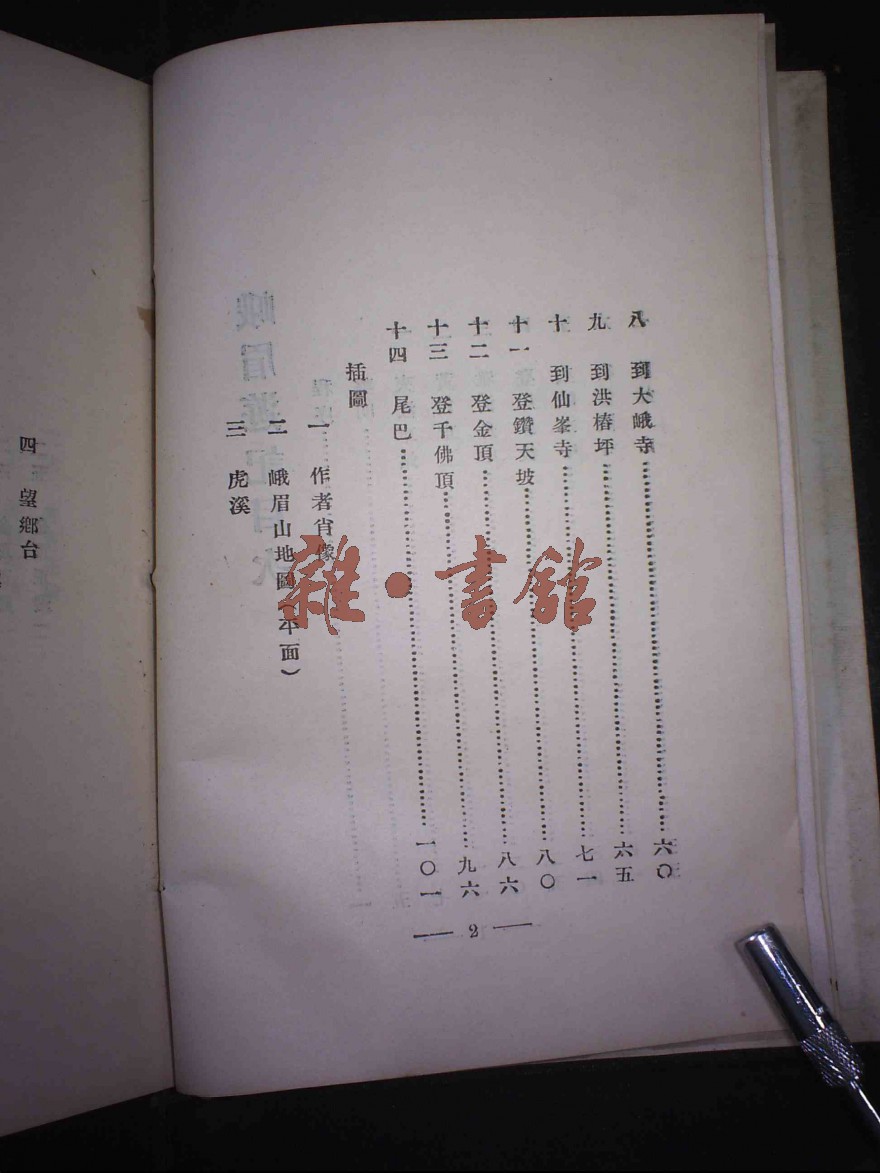 八 到大峨寺……六〇
九 到洪椿坪……六五
十 到仙峯寺……七一
十一 登鑽天坡……八〇
十二 登金頂……八六
十三 登千佛頂……九六
十四 尾巴……一〇一
插圖
一 作者肖像
二 峨眉山地圖(平面)
三 虎溪
— 2 —
四 望鄉台
雜·書館